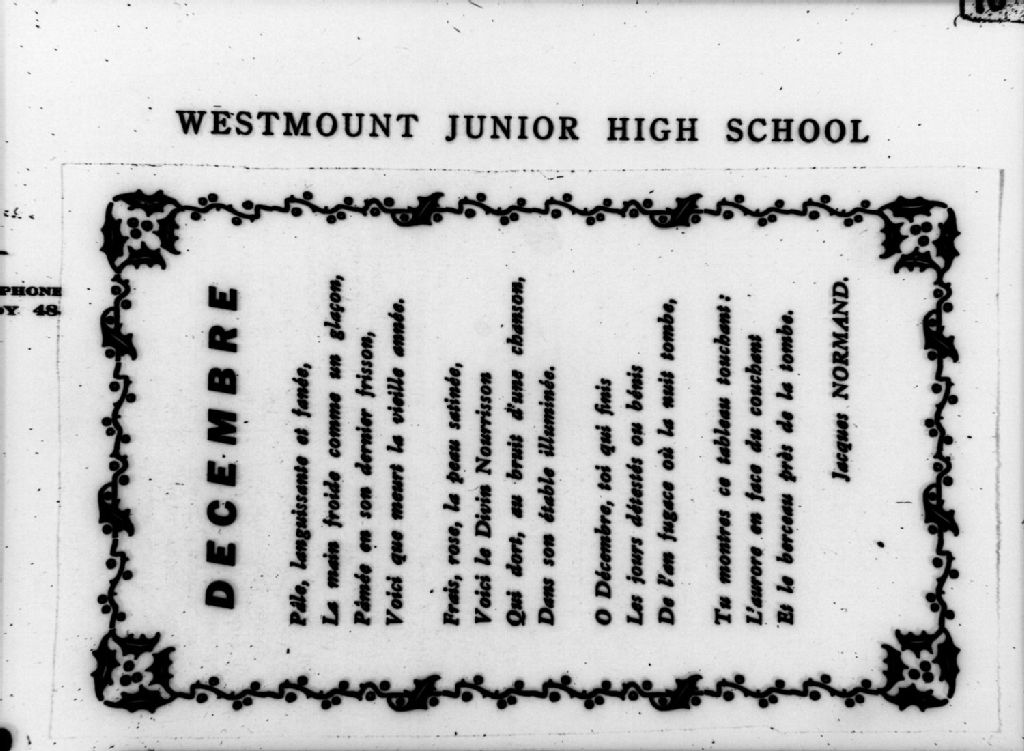 WESTMOUNT JUNIOR HIGH SCHOOL
PHONE
48
DECEMBRE
Pâle, languissante et fanée,
La main froide comme un glaçon,
Pâmée en son dernier frisson,
Voici que meurt la vieille année.
Frais, rose, la peau satinée,
Voici le Divin Nourrisson
Qui dort, au bruit d'une chanson,
Dans son étable illuminée.
O Décembre, toi qui finis
Les jours détestés ou bénis
De l'an fugace où la nuit tombe,
Tu montres ce tableau touchant :
L'aurore en face du couchant
Et le berceau près de la tombe.
Jacques NORMAND.